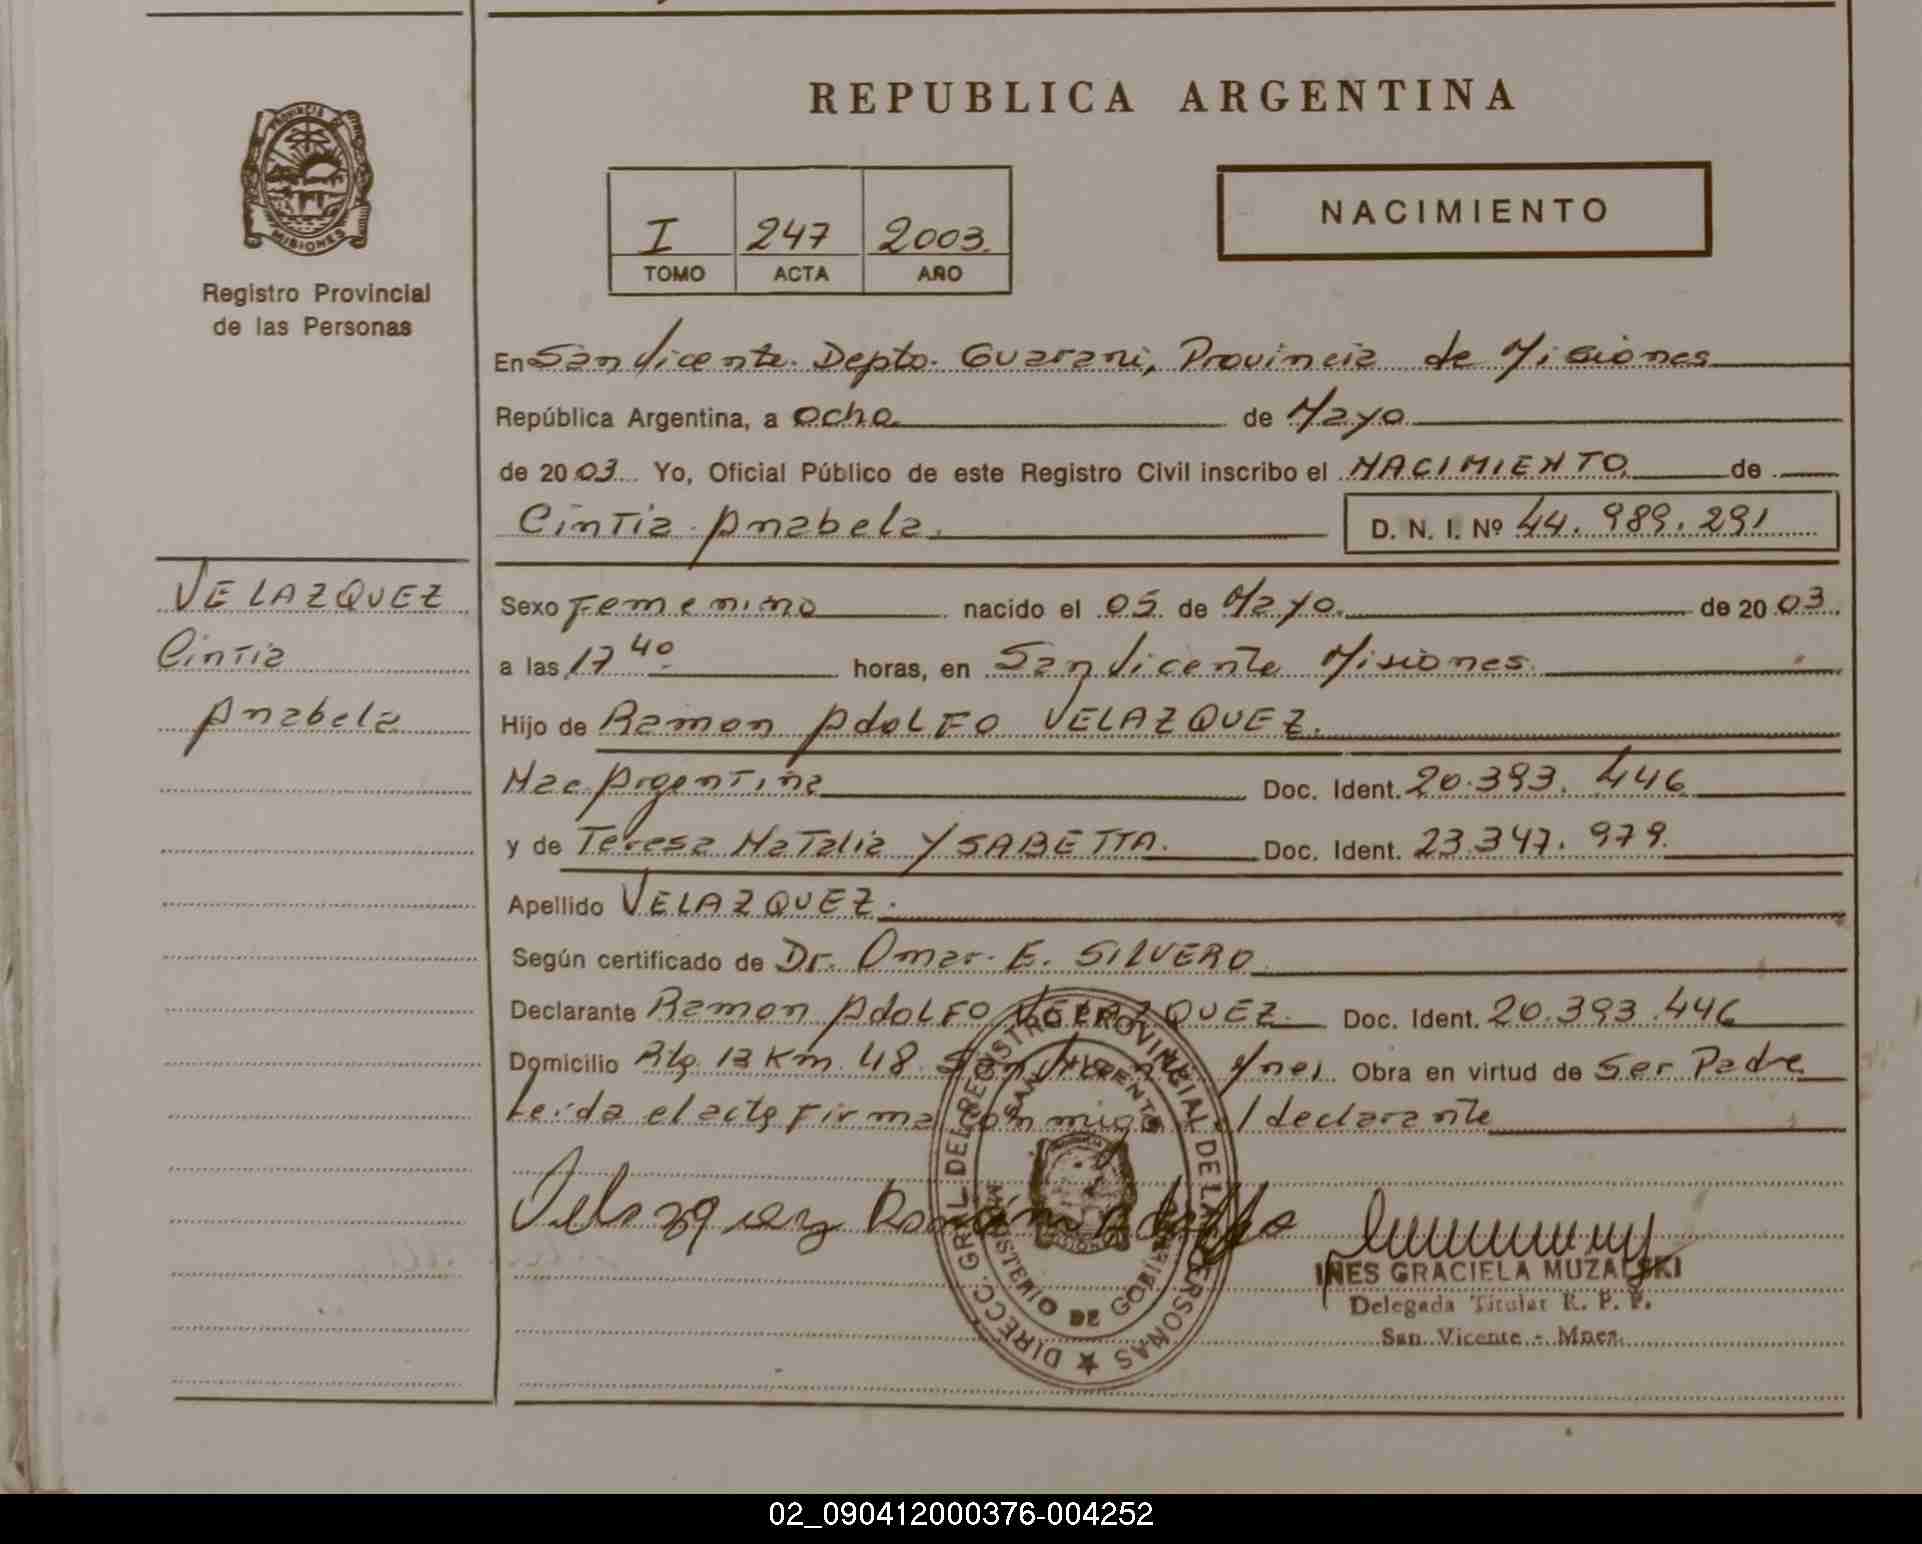 REPUBLICA ARGENTINA
PROVINCIA DE
MISIONES
Registro Provincial
de las Personas
I 247 2003.
TOMO ACTA AÑO
NACIMIENTO
En San Vicente. Depto. Guarani, Provincia de Misiones
República Argentina, a ocho de Mayo
de 2003 Yo, Oficial Público de este Registro Civil inscribo el NACIMIENTO de
Cintia Anabela. D. N. I. Nº 44.989.291
VELAZQUEZ
Cintia
Anabela
Sexo Femenino nacido el 05 de Mayo. de 20 03.
a las 17 40 horas, en San Vicente Misiones.
Hijo de Ramon Adolfo VELAZQUEZ.
Nac Argentina Doc. Ident. 20.393.446
y de Teresa Natalia YSABETTA. Doc. Ident. 23.347.979.
Apellido VELAZQUEZ.
Según certificado de Dr. Omar E. SILVERO
Declarante Ramon Adolfo VELAZQUEZ Doc. Ident. 20.393.446
Domicilio Rta 13 Km 48 San Vicente Mnes. Obra en virtud de Ser Padre
Leida el acta firma conmigo el declarante
Velazquez Ramón Adolfo
DIRECC. GRAL. DEL REGISTRO PROVINCIAL DE LAS PERSONAS
SAN VICENTE
MINISTERIO DE GOBIERNO
INES GRACIELA MUZALSKI
Delegada Titular R. P. P.
San Vicente - Mnes.
02_090412000376-004252